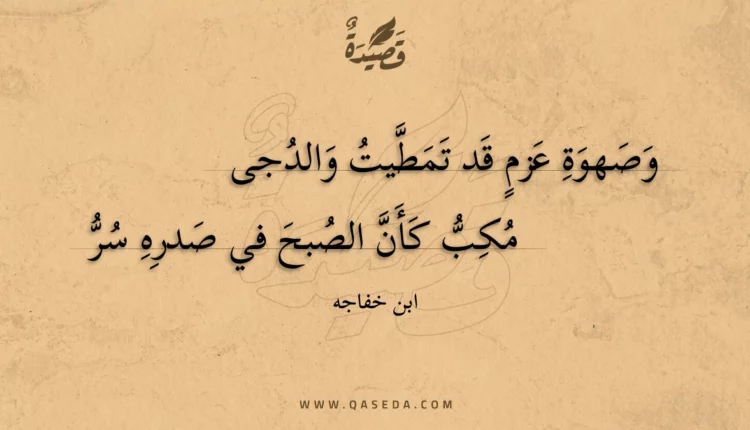 قَصِيدَةٌ
وَصَهوَةِ عَزمٍ قَد تَمَطَّيتُ وَالدُجى
مُكِبُّ كَأَنَّ الصُبحَ في صَدرِهِ سُرُّ
ابن خفاجه
WWW.QASEDA.COM